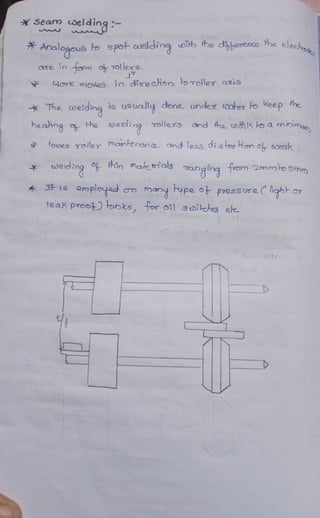 * Seam welding :-
* Analogous to spot welding with the difference the electrodes
are in form of rollers.
* Work moves in direction to roller axis
* The welding is usually done under water to keep the
heating of the welding rollers and the work to a minimum
* lower roller maintenance and less distortion of work
* welding of thin materials ranging from 2mm to 5mm
* It is employed on many type of pressure (light or
leak proof) tanks, for oil switches etc.